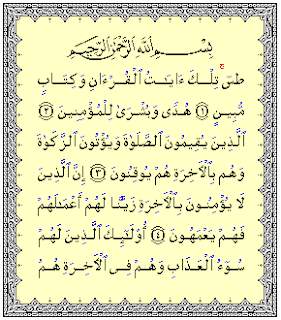 بِسْمِ اللَّهِ الرَّحْمَٰنِ الرَّحِيمِ
طسٓ تِلْكَ ءَايَٰتُ الْقُرْءَانِ وَكِتَابٍ
مُّبِينٍ ١ هُدًى وَبُشْرَىٰ لِلْمُؤْمِنِينَ ٢
الَّذِينَ يُقِيمُونَ الصَّلَوٰةَ وَيُؤْتُونَ الزَّكَوٰةَ
وَهُم بِالْأَخِرَةِ هُمْ يُوقِنُونَ ٣ إِنَّ الَّذِينَ
لَا يُؤْمِنُونَ بِالْأَخِرَةِ زَيَّنَّا لَهُمْ أَعْمَٰلَهُمْ
فَهُمْ يَعْمَهُونَ ٤ أُوْلَٰٓئِكَ الَّذِينَ لَهُمْ
سُوٓءُ الْعَذَابِ وَهُمْ فِى الْأَخِرَةِ هُمُ